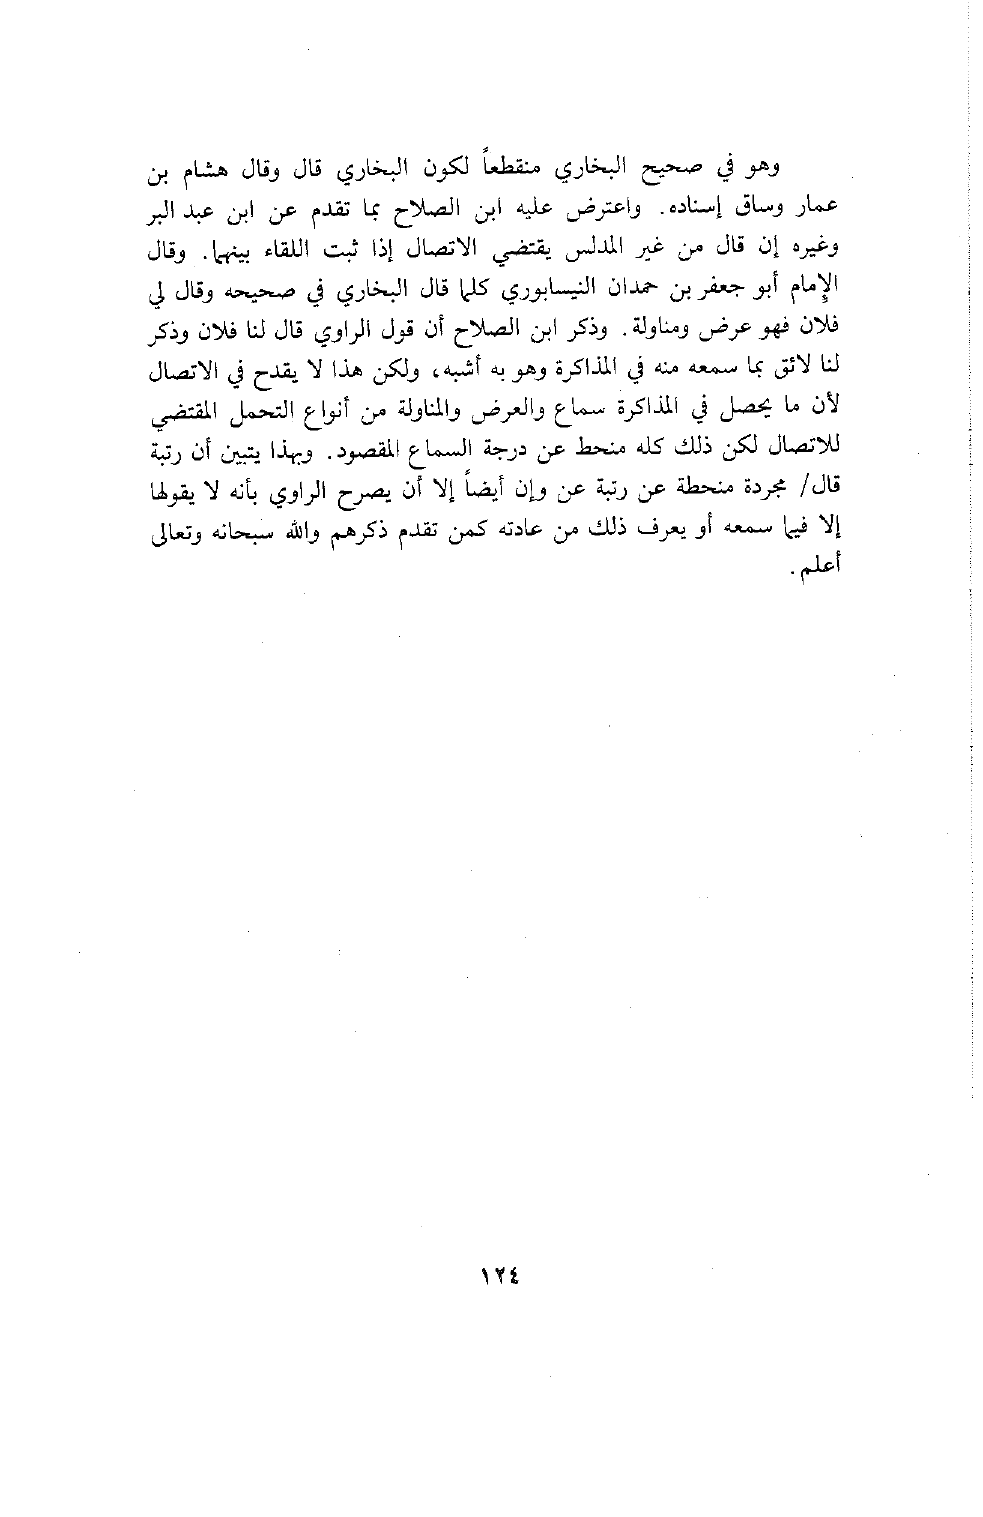 وهو في صحيح البخاري منقطعاً لكون البخاري قال وقال هشام بن
عمار وساق إسناده. واعترض عليه ابن الصلاح بما تقدم عن ابن عبد البر
وغيره إن قال من غير المدلس يقتضي الاتصال إذا ثبت اللقاء بينهما. وقال
الإمام أبو جعفر بن حمدان النيسابوري كلما قال البخاري في صحيحه وقال لي
فلان فهو عرض ومناولة. وذكر ابن الصلاح أن قول الراوي قال لنا فلان وذكر
لنا لائق بما سمعه منه في المذاكرة وهو به أشبه، ولكن هذا لا يقدح في الاتصال
لأن ما يحصل في المذاكرة سماع والعرض والمناولة من أنواع التحمل المقتضي
للاتصال لكن ذلك كله منحط عن درجة السماع المقصود. وبهذا يتبين أن رتبة
قال/ مجردة منحطة عن رتبة عن وإن أيضاً إلا أن يصرح الراوي بأنه لا يقولها
إلا فيما سمعه أو يعرف ذلك من عادته كمن تقدم ذكرهم والله سبحانه وتعالى
أعلم.
١٢٤